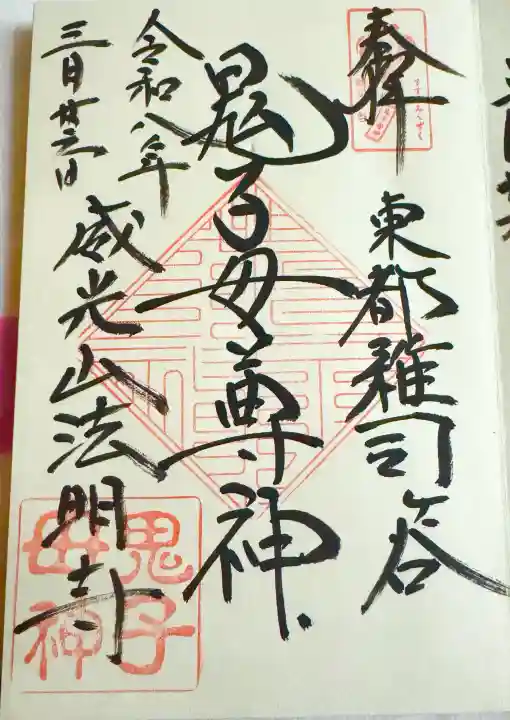 奉拝
東都雑司ヶ谷
鬼子母尊神
令和八年
三月廿六日
威光山法明寺
すすきみみずく
鬼子
母神